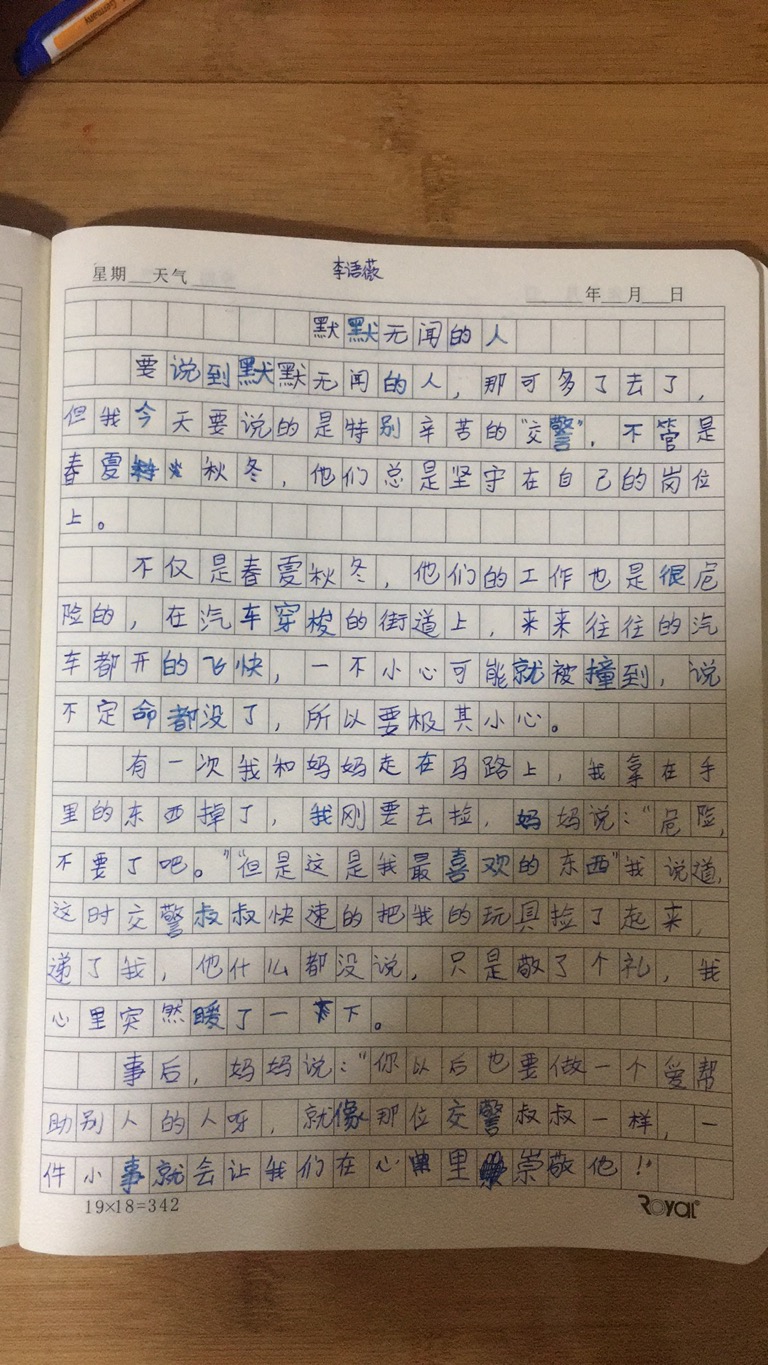 Germany
李语薇
星期 天气 年 月 日
默默无闻的人
要说到默默无闻的人，那可多了去了，
但我今天要说的是特别辛苦的“交警”，不管是
春夏秋冬，他们总是坚守在自己的岗位
上。
不仅是春夏秋冬，他们的工作也是很危
险的，在汽车穿梭的街道上，来来往往的汽
车都开的飞快，一不小心可能就被撞到，说
不定命都没了，所以要极其小心。
有一次我和妈妈走在马路上，我拿在手
里的东西掉了，我刚要去捡，妈妈说：“危险，
不要了吧。”“但是这是我最喜欢的东西”我说道，
这时交警叔叔快速的把我的玩具捡了起来，
递了我，他什么都没说，只是敬了个礼，我
心里突然暖了一下。
事后，妈妈说：“你以后也要做一个爱帮
助别人的人呀，就像那位交警叔叔一样，一
件小事就会让我们在心里崇敬他！”
19×18=342
ROYAL